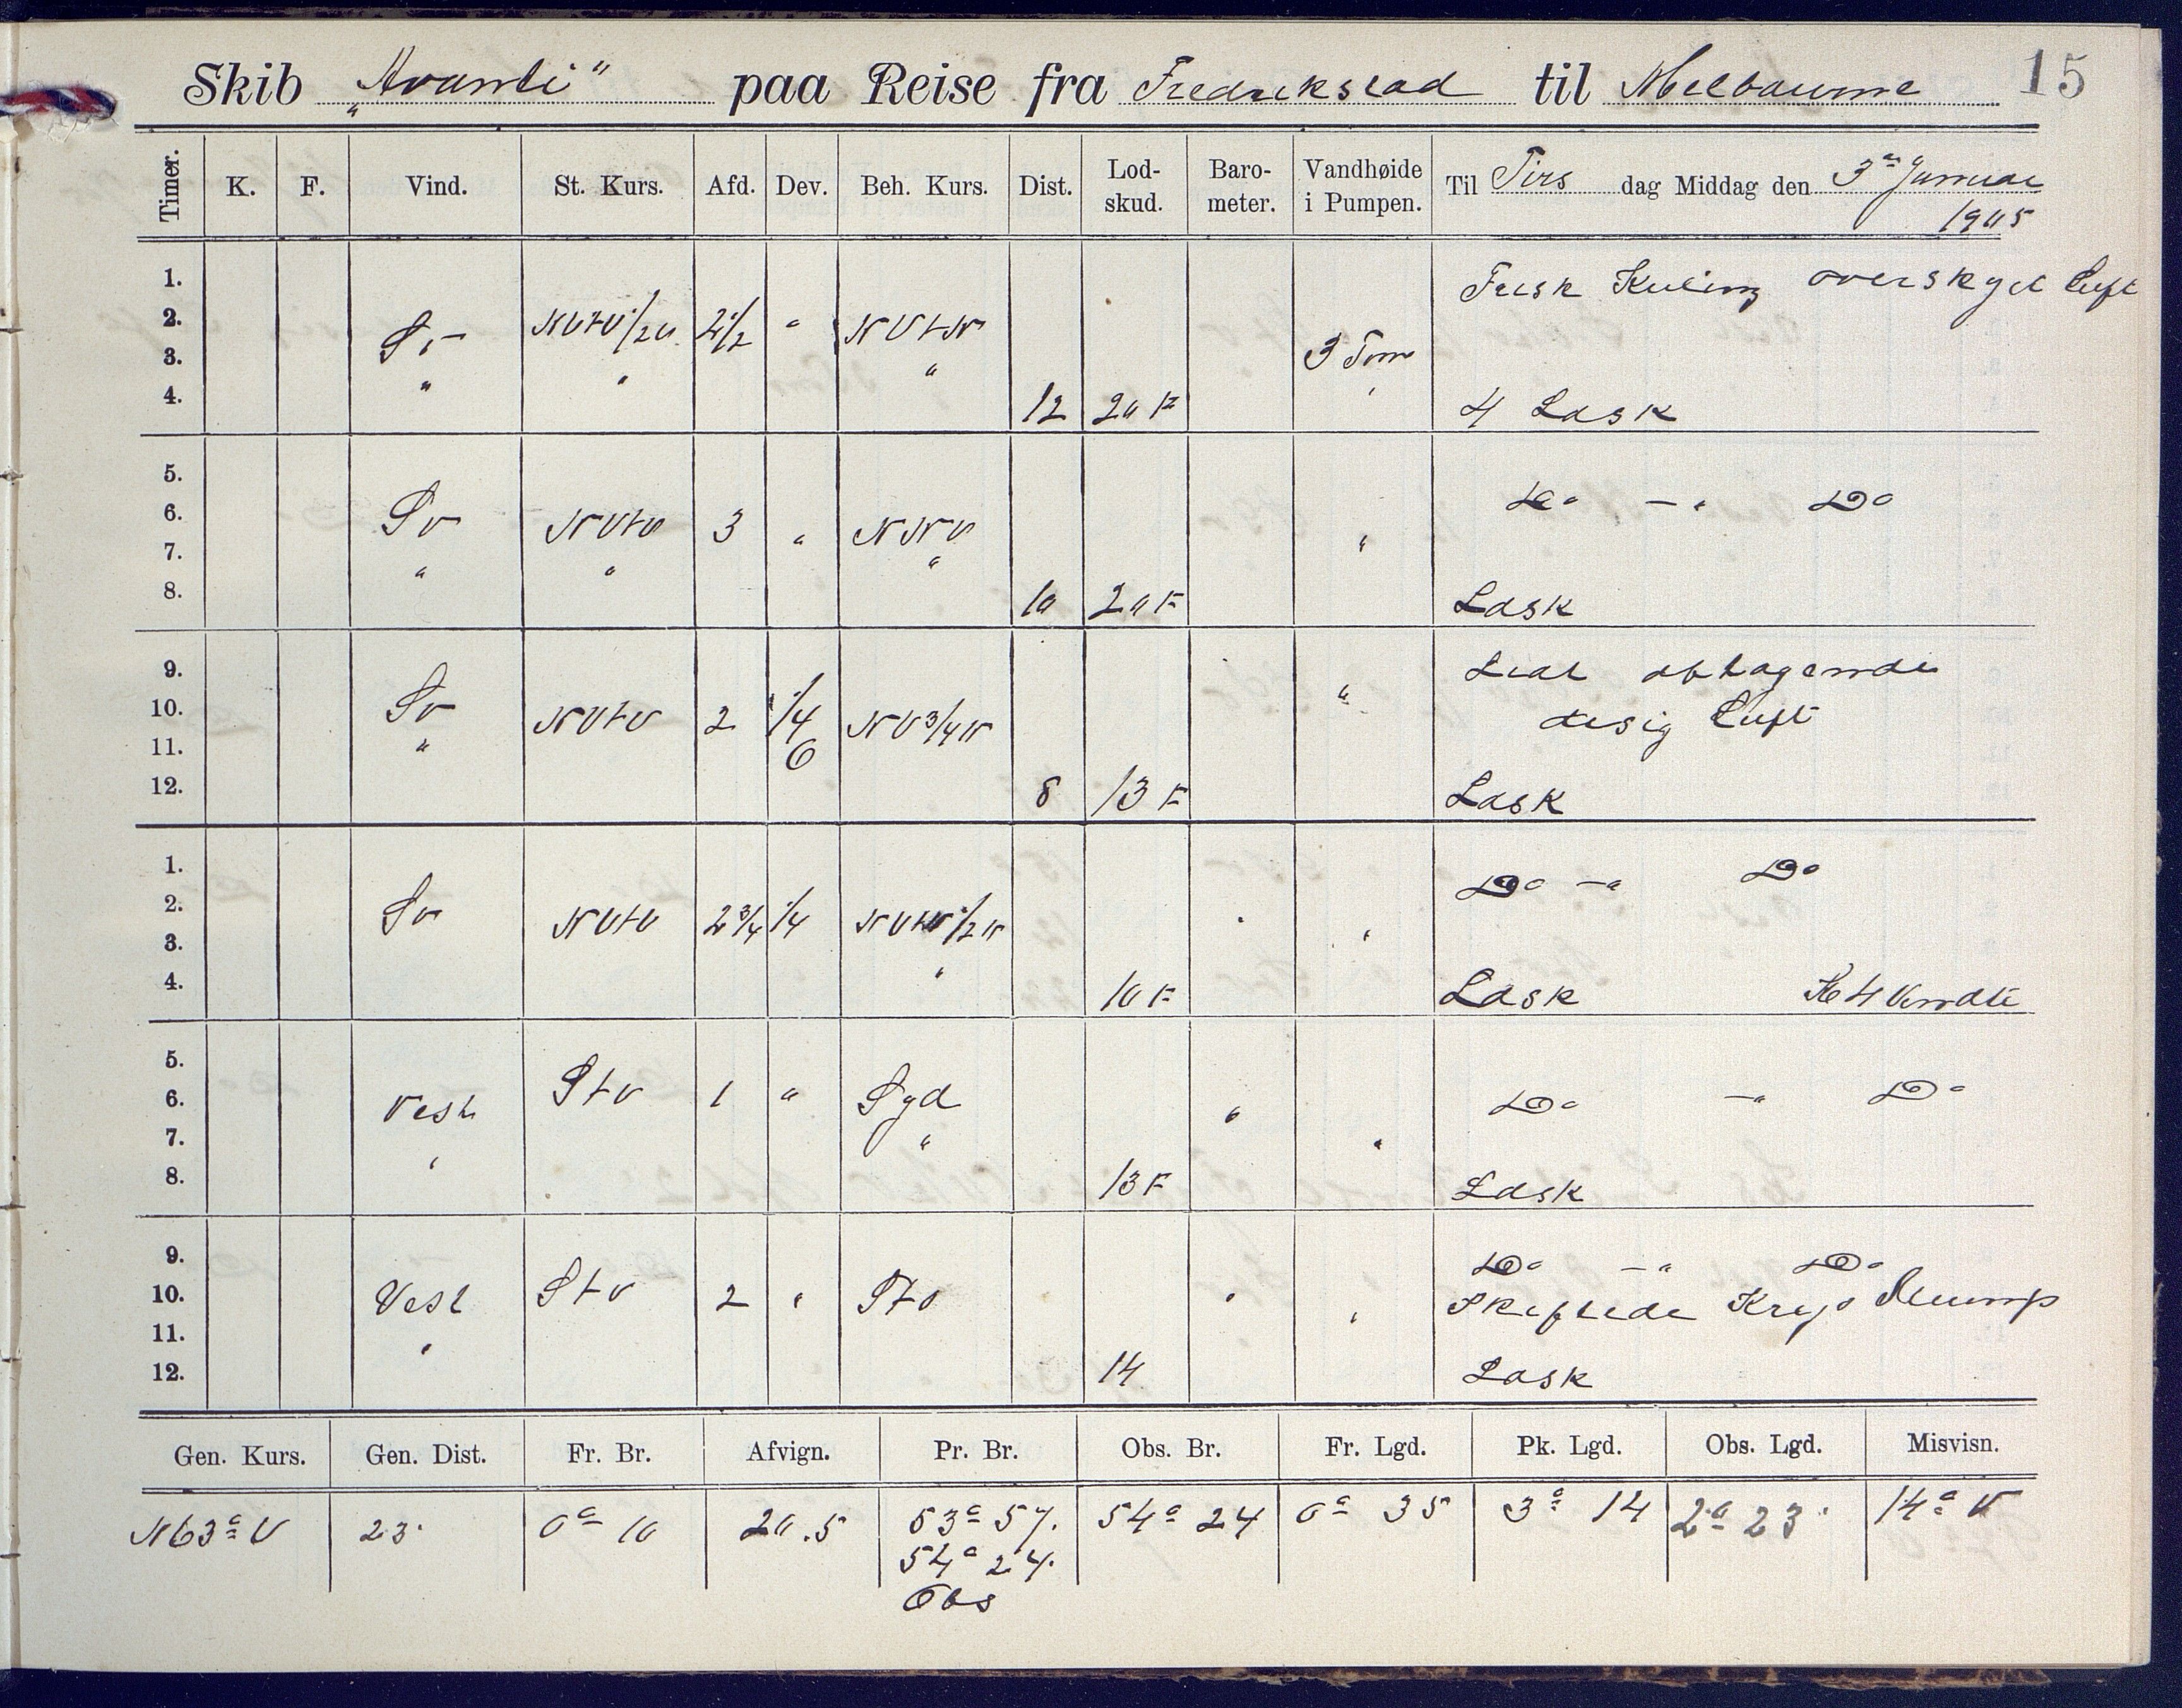 Skib „Avanti“ paa Reise fra Fredrikstad til Melbourne 15
Timer. K. F. Vind. St. Kurs. Afd. Dev. Beh. Kurs. Dist. Lod-skud. Baro-meter. Vandhøide i Pumpen. Til Tirs dag Middag den 3 Januar
1905
1. Frisk Kuling overskyet luft
2. SV 2 1/2 " NVtN
3. " " " 3 Tom
4. 12 20 F " 4 Lask
5. Do —"— Do
6. SV NVtV 3 " NNV
7. " " " "
8. 10 20 F Lask
9. Liat aftagende
10. SV NVtV 2 1/4 NV 3/4 N " disig luft
11. " 6
12. 8 13 F Lask
1. Do —"— Do
2. SV NVtV 2 3/4 1/4 1/2 N
3. " "
4. 10 F Lask Kl 4 Vendte
5.
6. Vest StV 1 " Syd " Do —"— Do
7. " " "
8. 13 F Lask
9. Do —"— Do
10. Vest StV 2 " StO " Skiftede Kryds
11. " "
12. 14 Lask
Gen. Kurs. Gen. Dist. Fr. Br. Afvign. Pr. Br. Obs. Br. Fr. Lgd. Pk. Lgd. Obs. Lgd. Misvisn.
N63°V 23' 0° 10 20.5 53° 57. 54° 24 0° 35 3° 14 2° 23' 14° V
54° 24.
Obs